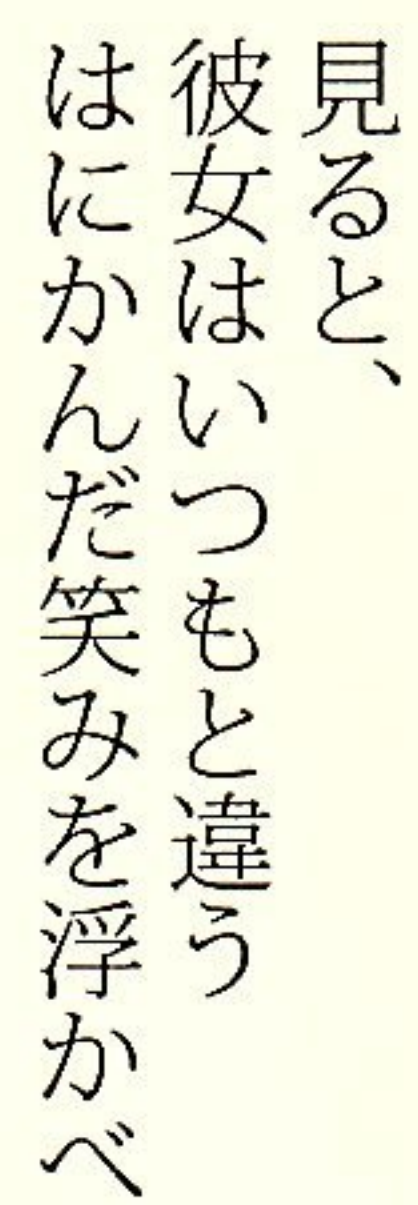 見ると、
彼女はいつもと違う
はにかんだ笑みを浮かべ